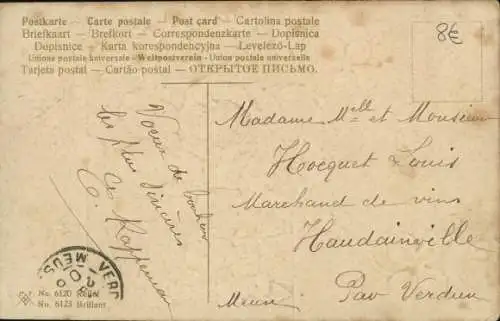 Postkarte - Carte postale - Post card - Cartolina postale
Briefkaart - Brefkort - Correspondenzkarte - Dopisnica
Dopisnice - Karta korespondencyjna - Levelező-Lap
Unione postale universale - Weltpostverein - Union postale universelle
Tarjeta postal - Cartão postal - ОТКРЫТОЕ ПИСЬМО.
8€
Voeux de bonheur
les plus sincères
Madame Melle et Monsieur
Hocquet Louis
Marchand de vins
Haudainville
Meuse Par Verdun
VERD
MEUS
No. 6120 Relief
No. 6123 Brillant